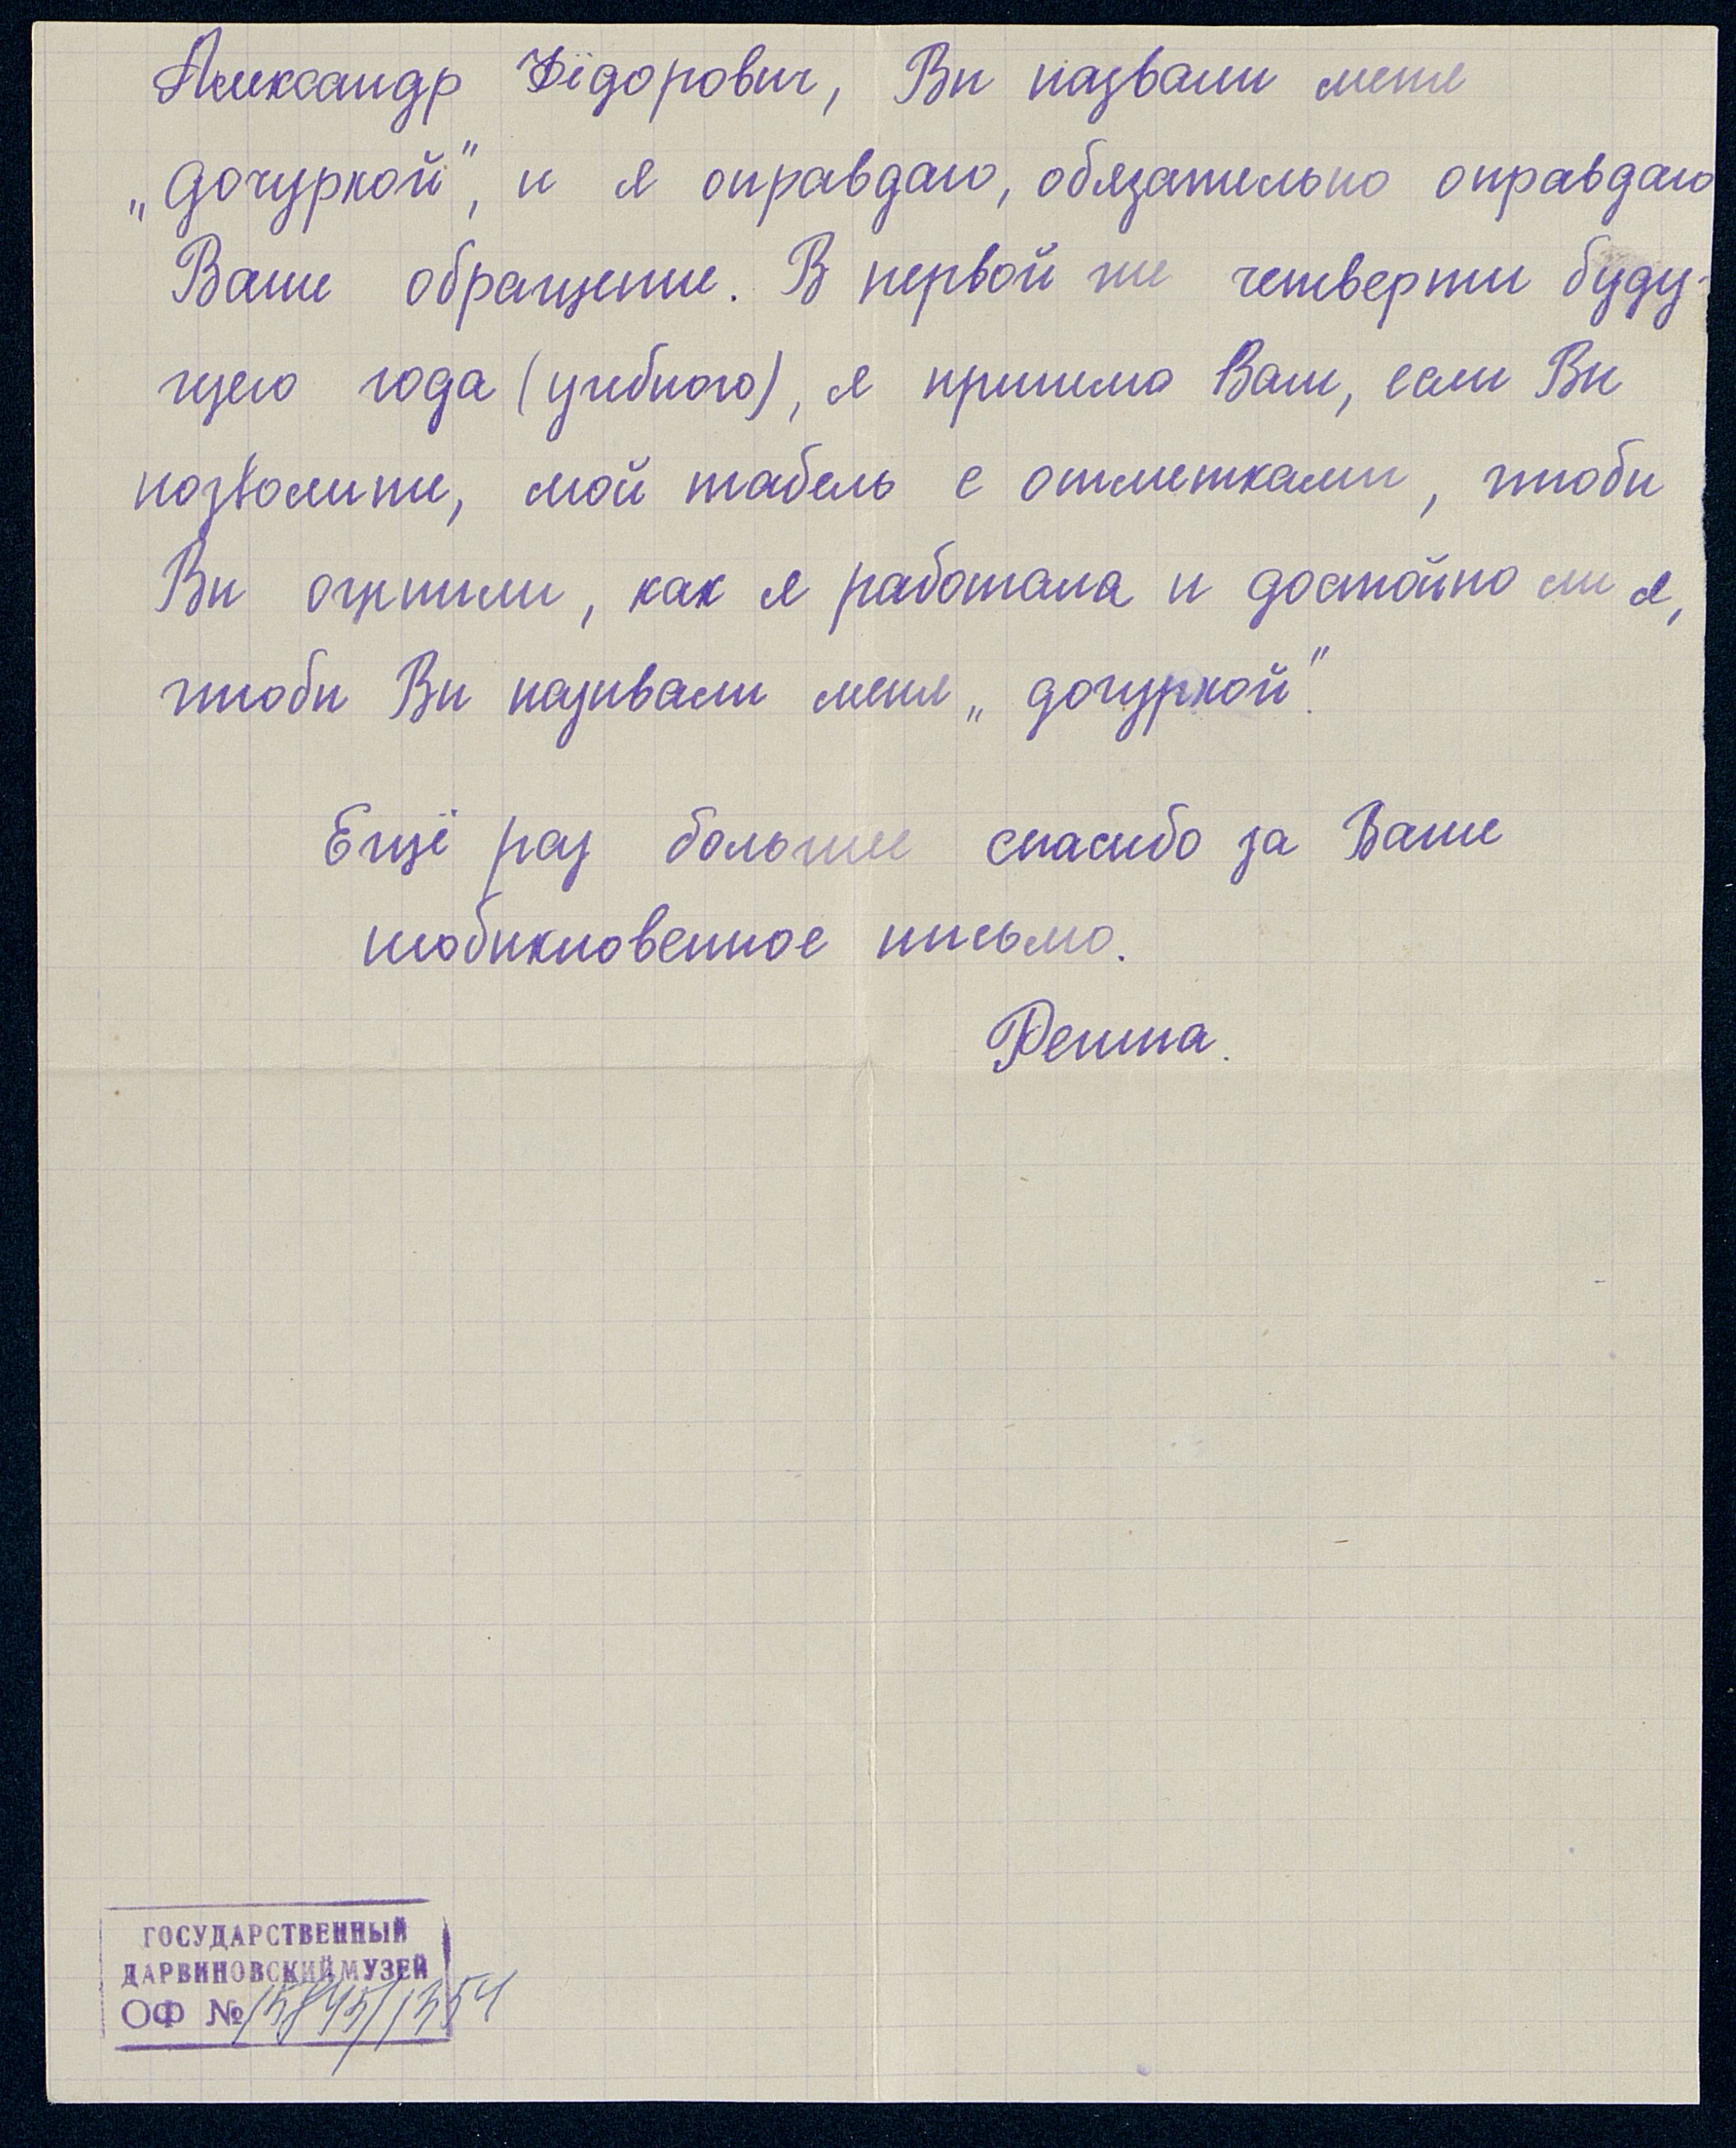 Александр Фёдорович, Вы назвали меня
„дочуркой", и я оправдаю, обязательно оправдаю
Ваше обращение. В первой же четверти буду-
щего года (учебного), я пришлю Вам, если Вы
позволите, мой табель с отметками, чтобы
Вы оценили, как я работала и достойно ли я,
чтобы Вы называли меня „дочуркой".
Ещё раз большое спасибо за Ваше
необыкновенное письмо.
Ренина.
ГОСУДАРСТВЕННЫЙ
ДАРВИНОВСКИЙ МУЗЕЙ
ОФ № 15845/1354